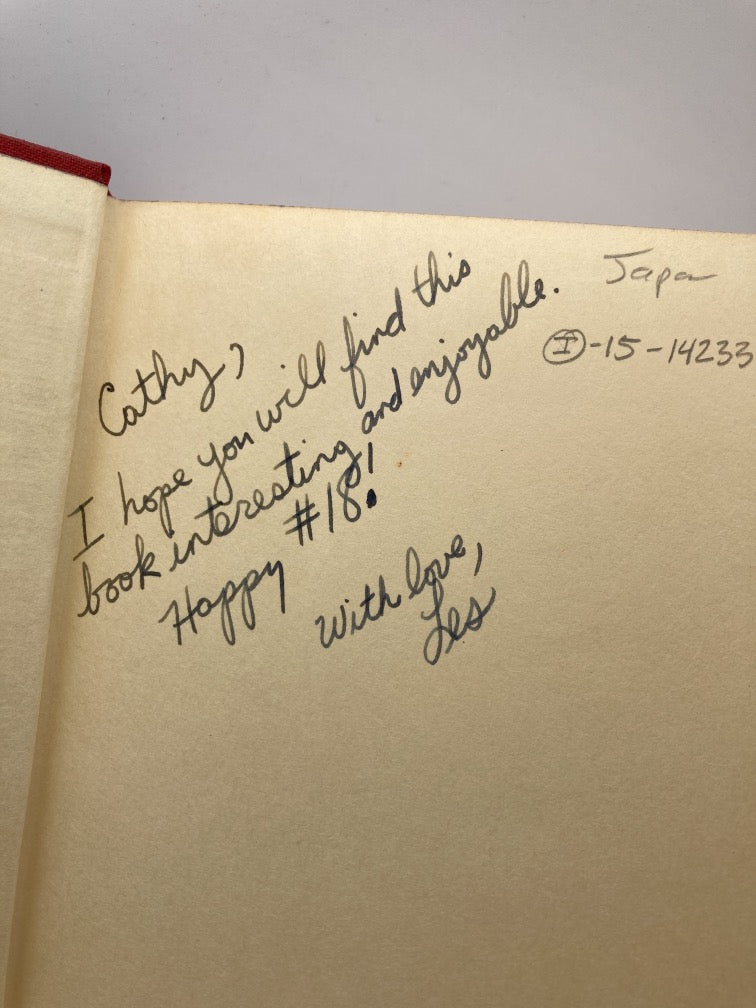 Cathy,
I hope you will find this
book interesting and enjoyable.
Happy #18!
With love,
Les
Japan
I-15-14233